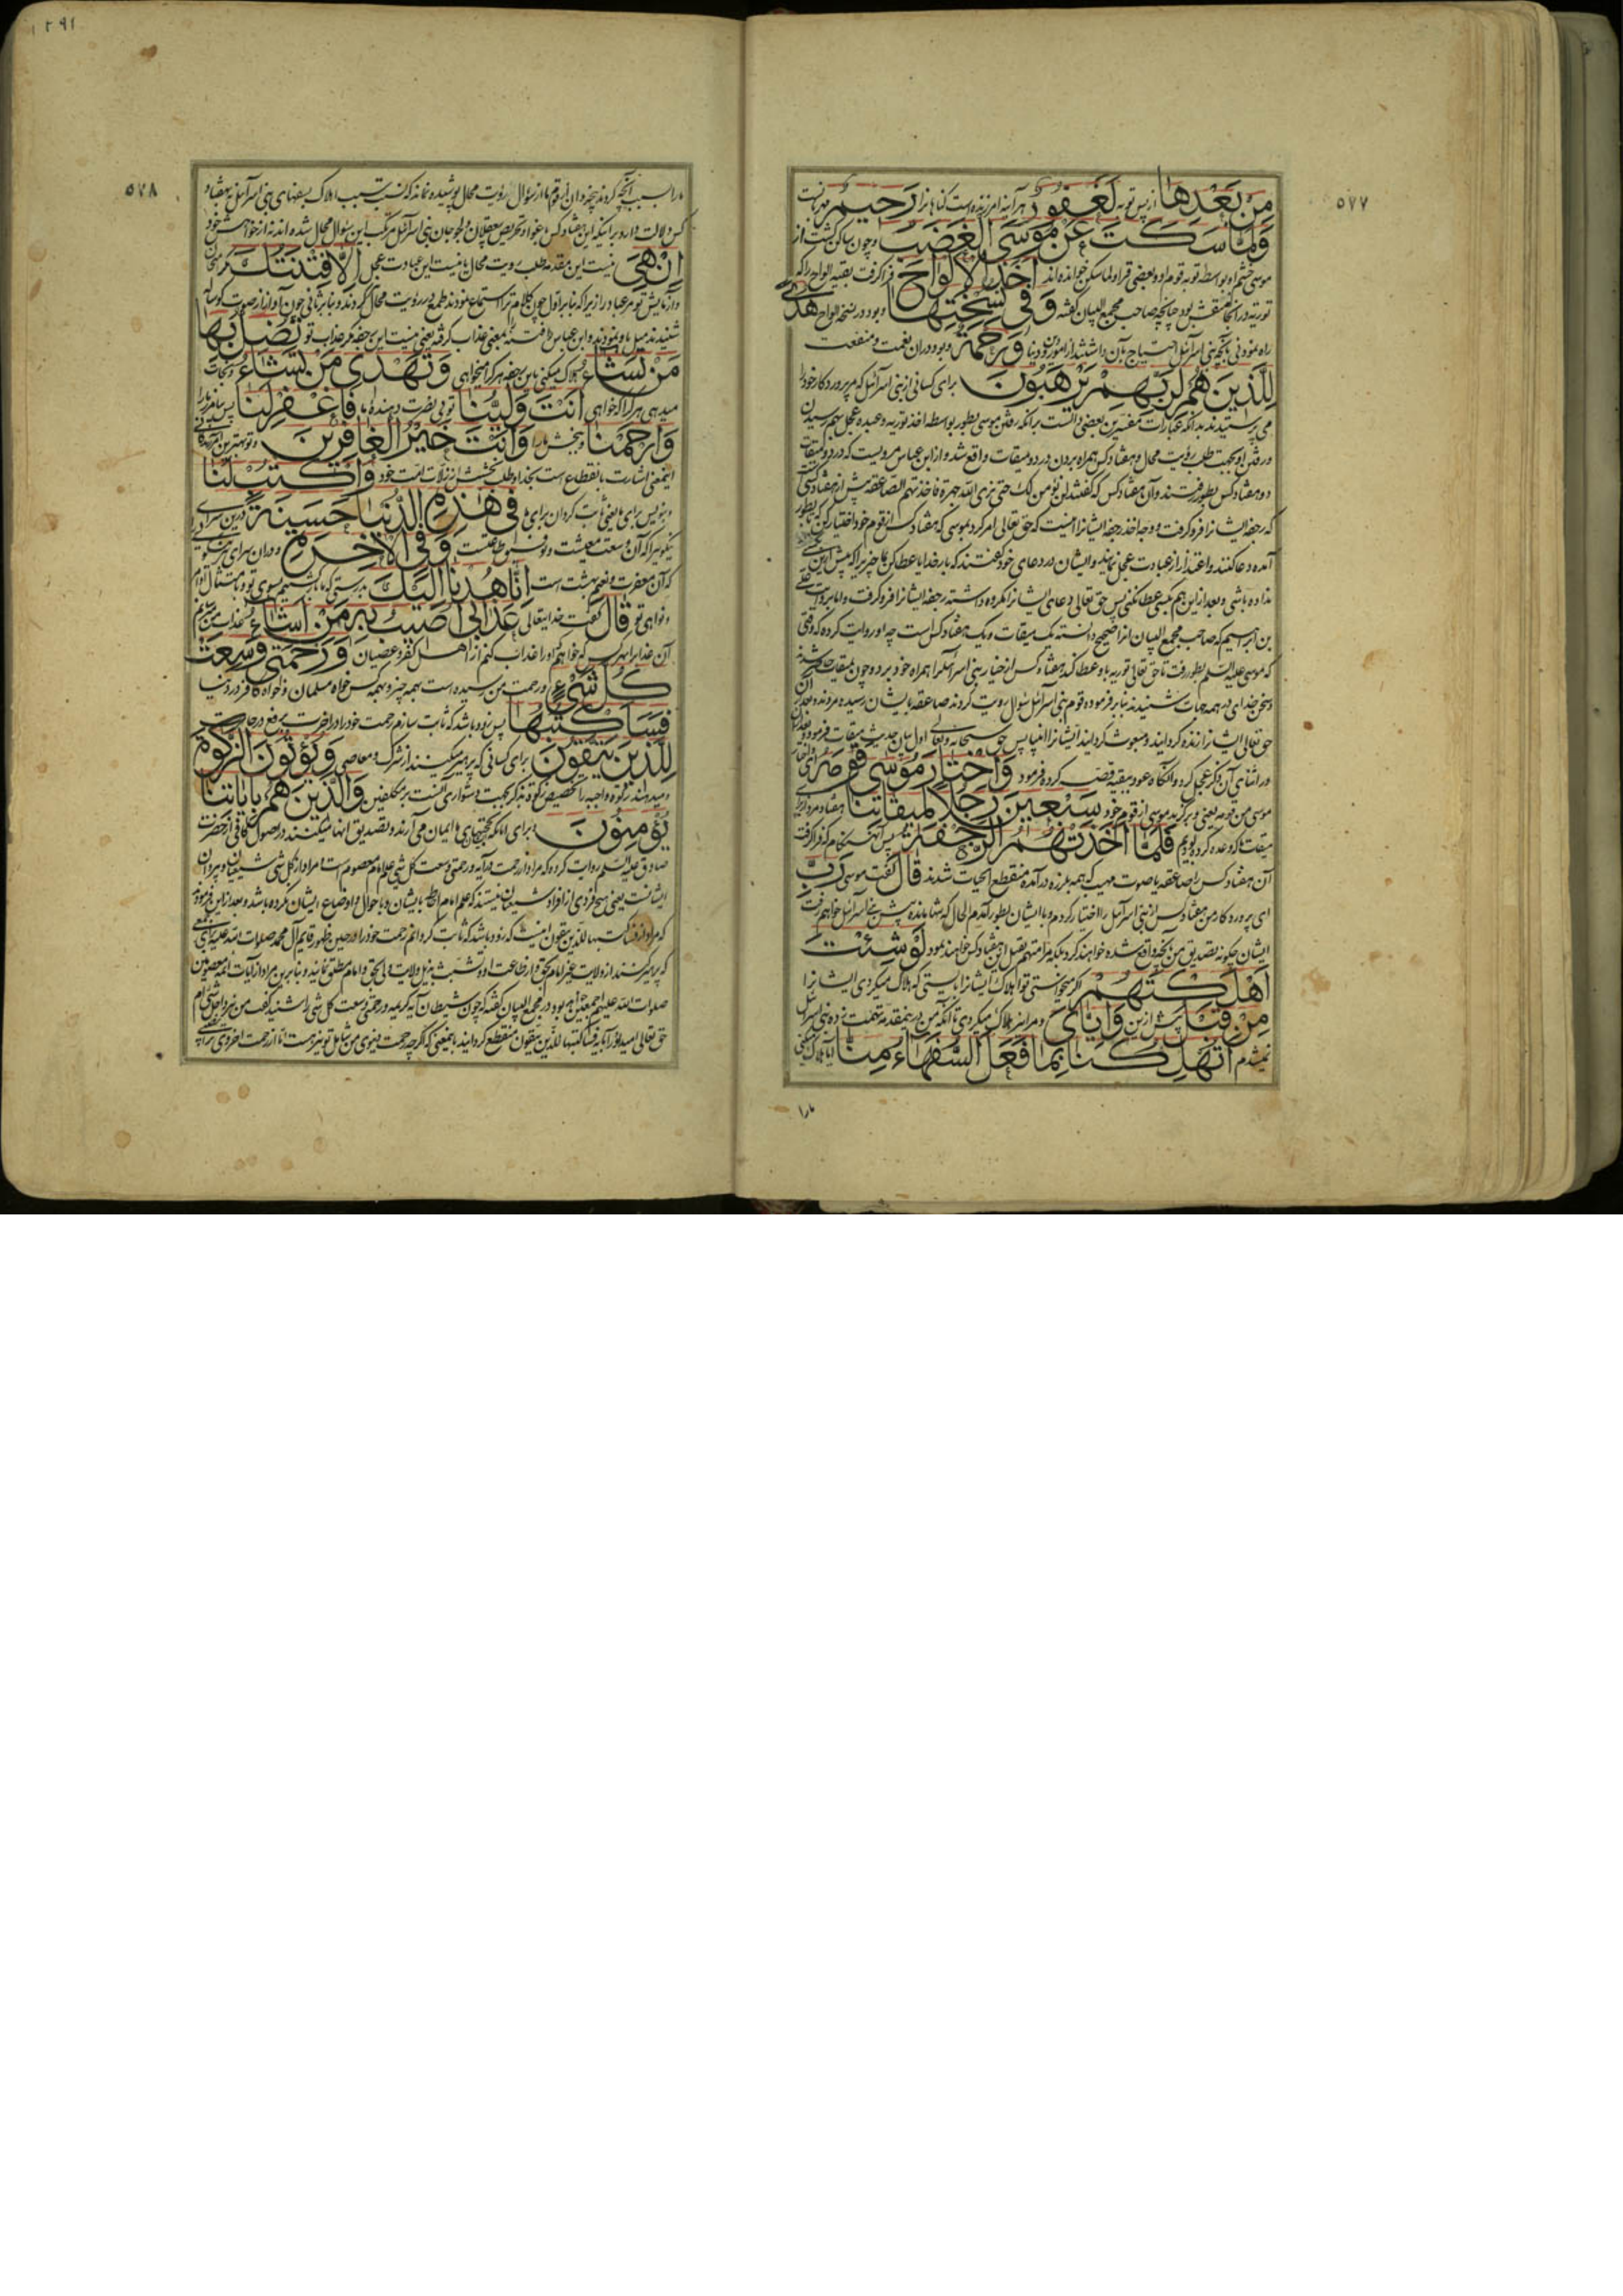 ٥٧٧
مِنْ بَعْدِهَا از پس توبه لَغَفُورٌ هر آینه آمرزنده است گناهانرا رَحِيمٌ مهربانست
وَلَمَّا سَكَتَ عَنْ مُوسَى الْغَضَبُ و چون ساکن گشت از
موسی خشم او بواسطه توبه قوم او و بعضی قراء ولما سکن خوانده‌اند أَخَذَ الْأَلْوَاحَ فرا گرفت بقیه الواح را که
توریة در آنجا منقش بود چنانچه صاحب مجمع البیان گفته وَفِي نُسْخَتِهَا و بود در نسخه الواح هُدًى
راه نمودنی بآنچه بنی اسرائیل احتیاج بآن داشتند از امور دین و دنیا وَرَحْمَةٌ و بود در ان نعمت و منفعت
لِلَّذِينَ هُمْ لِرَبِّهِمْ يَرْهَبُونَ برای کسانی از بنی اسرائیل که مر پروردکار خود را
می پرستیدند بدانکه عبارات مفسرین بعضی دالست بر آنکه رفتن موسی بطور بواسطه اخذ توریه و عبده عجل بهم رسیدن
و رفتن او بجهت طلب رؤیت محال و هفتاد کس همراه بردن در دو میقات واقع شد و از ابن عباس مرویست که در دو میقات
دو هفتاد کس بطور رفتند و آن هفتاد کس که گفتند لن نؤمن لک حتی نری الله جهرة فاخذتهم الصاعقة پیش از هفتاد کسی
که رجفه ایشانرا فرو گرفت و وجه اخذ رجفه ایشانرا اینست که حق تعالی امر کرد بموسی که هفتاد کس از قوم خود اختیار کن که بطور
آمده دعا کنند و اعتذار از عبادت عجل نمایند و ایشان در دعای خود گفتند که بار خدایا عطا کن بما چیزی را که پیش ازین بکسی
نداده باشی و بعد ازین هم بکسی عطا نکنی پس حق تعالی دعای ایشانرا مکروه داشته رجفه ایشانرا فرو گرفت و اما بروایت علی
بن ابراهیم که صاحب مجمع البیان انرا صحیح دانسته یک میقات و یک هفتاد کس است چه او روایت کرده که وقتی
که موسی علیه السلم بطور رفت تا حق تعالی توریه باو عطا کند هفتاد کس از خیار بنی اسرائیل را همراه خود برد و چون بمیقات حاضر شدند
و سخن خدای در همه جهات شنیدند بنا بر فرموده قوم بنی اسرائیل سؤال رویت کردند صاعقه بایشان رسیده مردند و بعد از آن
حق تعالی ایشانرا زنده گردانید و مبعوث گردانید ایشانرا انبیا پس حق سبحانه و تعالی اول بیان حدیث میقات فرمود و بعد از آن
در اثنای آن ذکر عجل کرد و انگاه عود ببقیه قصه کرده فرمود وَاخْتَارَ مُوسَى قَوْمَهُ
موسی من قومه یعنی و برگزید موسی از قوم خود سَبْعِينَ رَجُلًا لِمِيقَاتِنَا هفتاد مرد از برای
میقات ما که وعده کرده بودیم فَلَمَّا أَخَذَتْهُمُ الرَّجْفَةُ پس آن هنگام که فرا گرفت
آن هفتاد کس را صاعقه یا صوت مهیب که همه بلرزه درآمده منقطع الحیات شدند قَالَ گفت موسی رَبِّ
ای پروردکار من هفتاد کس از بنی اسرائیل را اختیار کردم و با ایشان بطور آمدم الحال که تنها مانده پیش بنی اسرائیل خواهم رفت
ایشان چگونه تصدیق من بآنچه واقع شده خواهند کرد بلکه مرا متهم بقتل این هفتاد کس خواهند نمود لَوْ شِئْتَ
أَهْلَكْتَهُمْ اگر میخواستی تو اهلاک ایشانرا بایستی که هلاک میکردی ایشانرا
مِنْ قَبْلُ پیش ازین وَإِيَّايَ و مرا نیز هلاک میکردی تا آنکه من درینمقدمه تهمت زده بنی اسرائیل
نمیشدم أَتُهْلِكُنَا بِمَا فَعَلَ السُّفَهَاءُ مِنَّا آیا هلاک میکنی
ما را
٥٧٨
ما را بسبب آنچه کردند بیخردان از قوم ما از سؤال رؤیت محال پوشیده نماند که نسبت سبب اهلاک بسفهای بنی اسرائیل بهفتاد
کس دلالت دارد بر اینکه این هفتاد کس باغوا و تحریص بیعقلان و لجوجان بنی اسرائیل مرتکب این سؤال محال شده‌اند نه از خواهش خود
إِنْ هِيَ نیست این مقدمه طلب رویت محال یا نیست این عبادت عجل إِلَّا فِتْنَتُكَ مگر امتحان
و آزمایش تو مر عباد را زیرا که بنا بر اول چون کلام ترا استماع نمودند طمع در رؤیت محال کردند و بنا بر ثانی چون آواز از صورت گوساله
شنیدند میل باو نمودند و ابن عباس فتنه بمعنی عذاب گرفته یعنی نیست این رجفه مگر عذاب تو تُضِلُّ بِهَا
مَنْ تَشَاءُ هلاک میکنی باین رجفه هر کرا میخواهی وَتَهْدِي مَنْ تَشَاءُ و نجات
میدهی هر کرا که خواهی أَنْتَ وَلِيُّنَا توئی نصرت دهنده ما فَاغْفِرْ لَنَا پس بیامرز ما را
وَارْحَمْنَا و ببخش ما را وَأَنْتَ خَيْرُ الْغَافِرِينَ و تو بهترین آمرزندگانی
اینمعنی اشارت بانقطاع است بخدا و طلب بخشش از زلات امت خود وَاكْتُبْ لَنَا
و بنویس برای ما یعنی ثابت گردان برای ما فِي هَذِهِ الدُّنْيَا حَسَنَةً درین سرای
نیکوئی را که آن وسعت معیشت و توفیق طاعتست وَفِي الْآخِرَةِ و در ان سرای هم نیکوئی
که آن مغفرت و نعیم بهشت است إِنَّا هُدْنَا إِلَيْكَ بدرستی که ما بازگشتیم بسوی تو و بامتثال اوامر
و نواهی تو قَالَ گفت خدایتعالی عَذَابِي أُصِيبُ بِهِ مَنْ أَشَاءُ عذاب من میرسانم
آن عذاب را بهر کس که خواهم که او را عذاب کنم از اهل کفر و عصیان وَرَحْمَتِي وَسِعَتْ
كُلَّ شَيْءٍ و رحمت من رسیده است بهمه چیز و بهمه کس خواه مسلمان و خواه کافر در دنیا
فَسَأَكْتُبُهَا پس زود باشد که ثابت سازم رحمت خود را در آخرت برفع درجات
لِلَّذِينَ يَتَّقُونَ برای کسانی که پرهیز میکنند از شرک و معاصی وَيُؤْتُونَ الزَّكَوةَ
و میدهند زکوة واجبه را تخصیص زکوة بذکر بجهت دشواری آنست بر مکلفین وَالَّذِينَ هُمْ بِآيَاتِنَا
يُؤْمِنُونَ و برای آنانکه بحجتهای ما ایمان می آرند و تصدیق آنها میکنند در اصول کافی از حضرت
صادق علیه السلم روایت کرده که مراد از رحمت در آیه و رحمتی وسعت کل شی علم امام معصوم است و مراد از کل شی شیعیان و پیروان
ایشانست یعنی هیچ فردی از افراد شیعیان نیستند که علم امام احاطه بایشان و باحوال و اوضاع ایشان نکرده باشد و بعد ازین فرموده
که مراد از فساکتبها للذین یتقون اینست که زود باشد که ثابت گردانم رحمت خود را در حین ظهور قایم آل محمد صلوات الله علیه برای جمعی
که پرهیز کنند از ولایت غیر امام بحق و از طاعت او
صلوات الله علیهم اجمعین خواهد بود و در مجمع البیان گفته که چون شیطان آیه کریمه و رحمتی وسعت کل شی را شنید گفت من نیز داخل شی ام
حق تعالی امید او را بآیه فساکتبها للذین یتقون منقطع گردانید باینمعنی که اگرچه رحمت دنیوی من شامل تو نیز هست اما از رحمت اخروی مرا